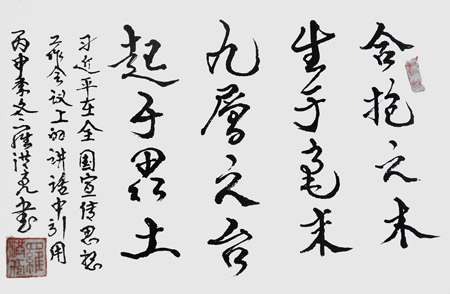 合抱之木
生于毫末
九層之台
起于累土
习近平在全国宣传思想
工作会议上的讲话中引用
丙申季冬羅洪亮书